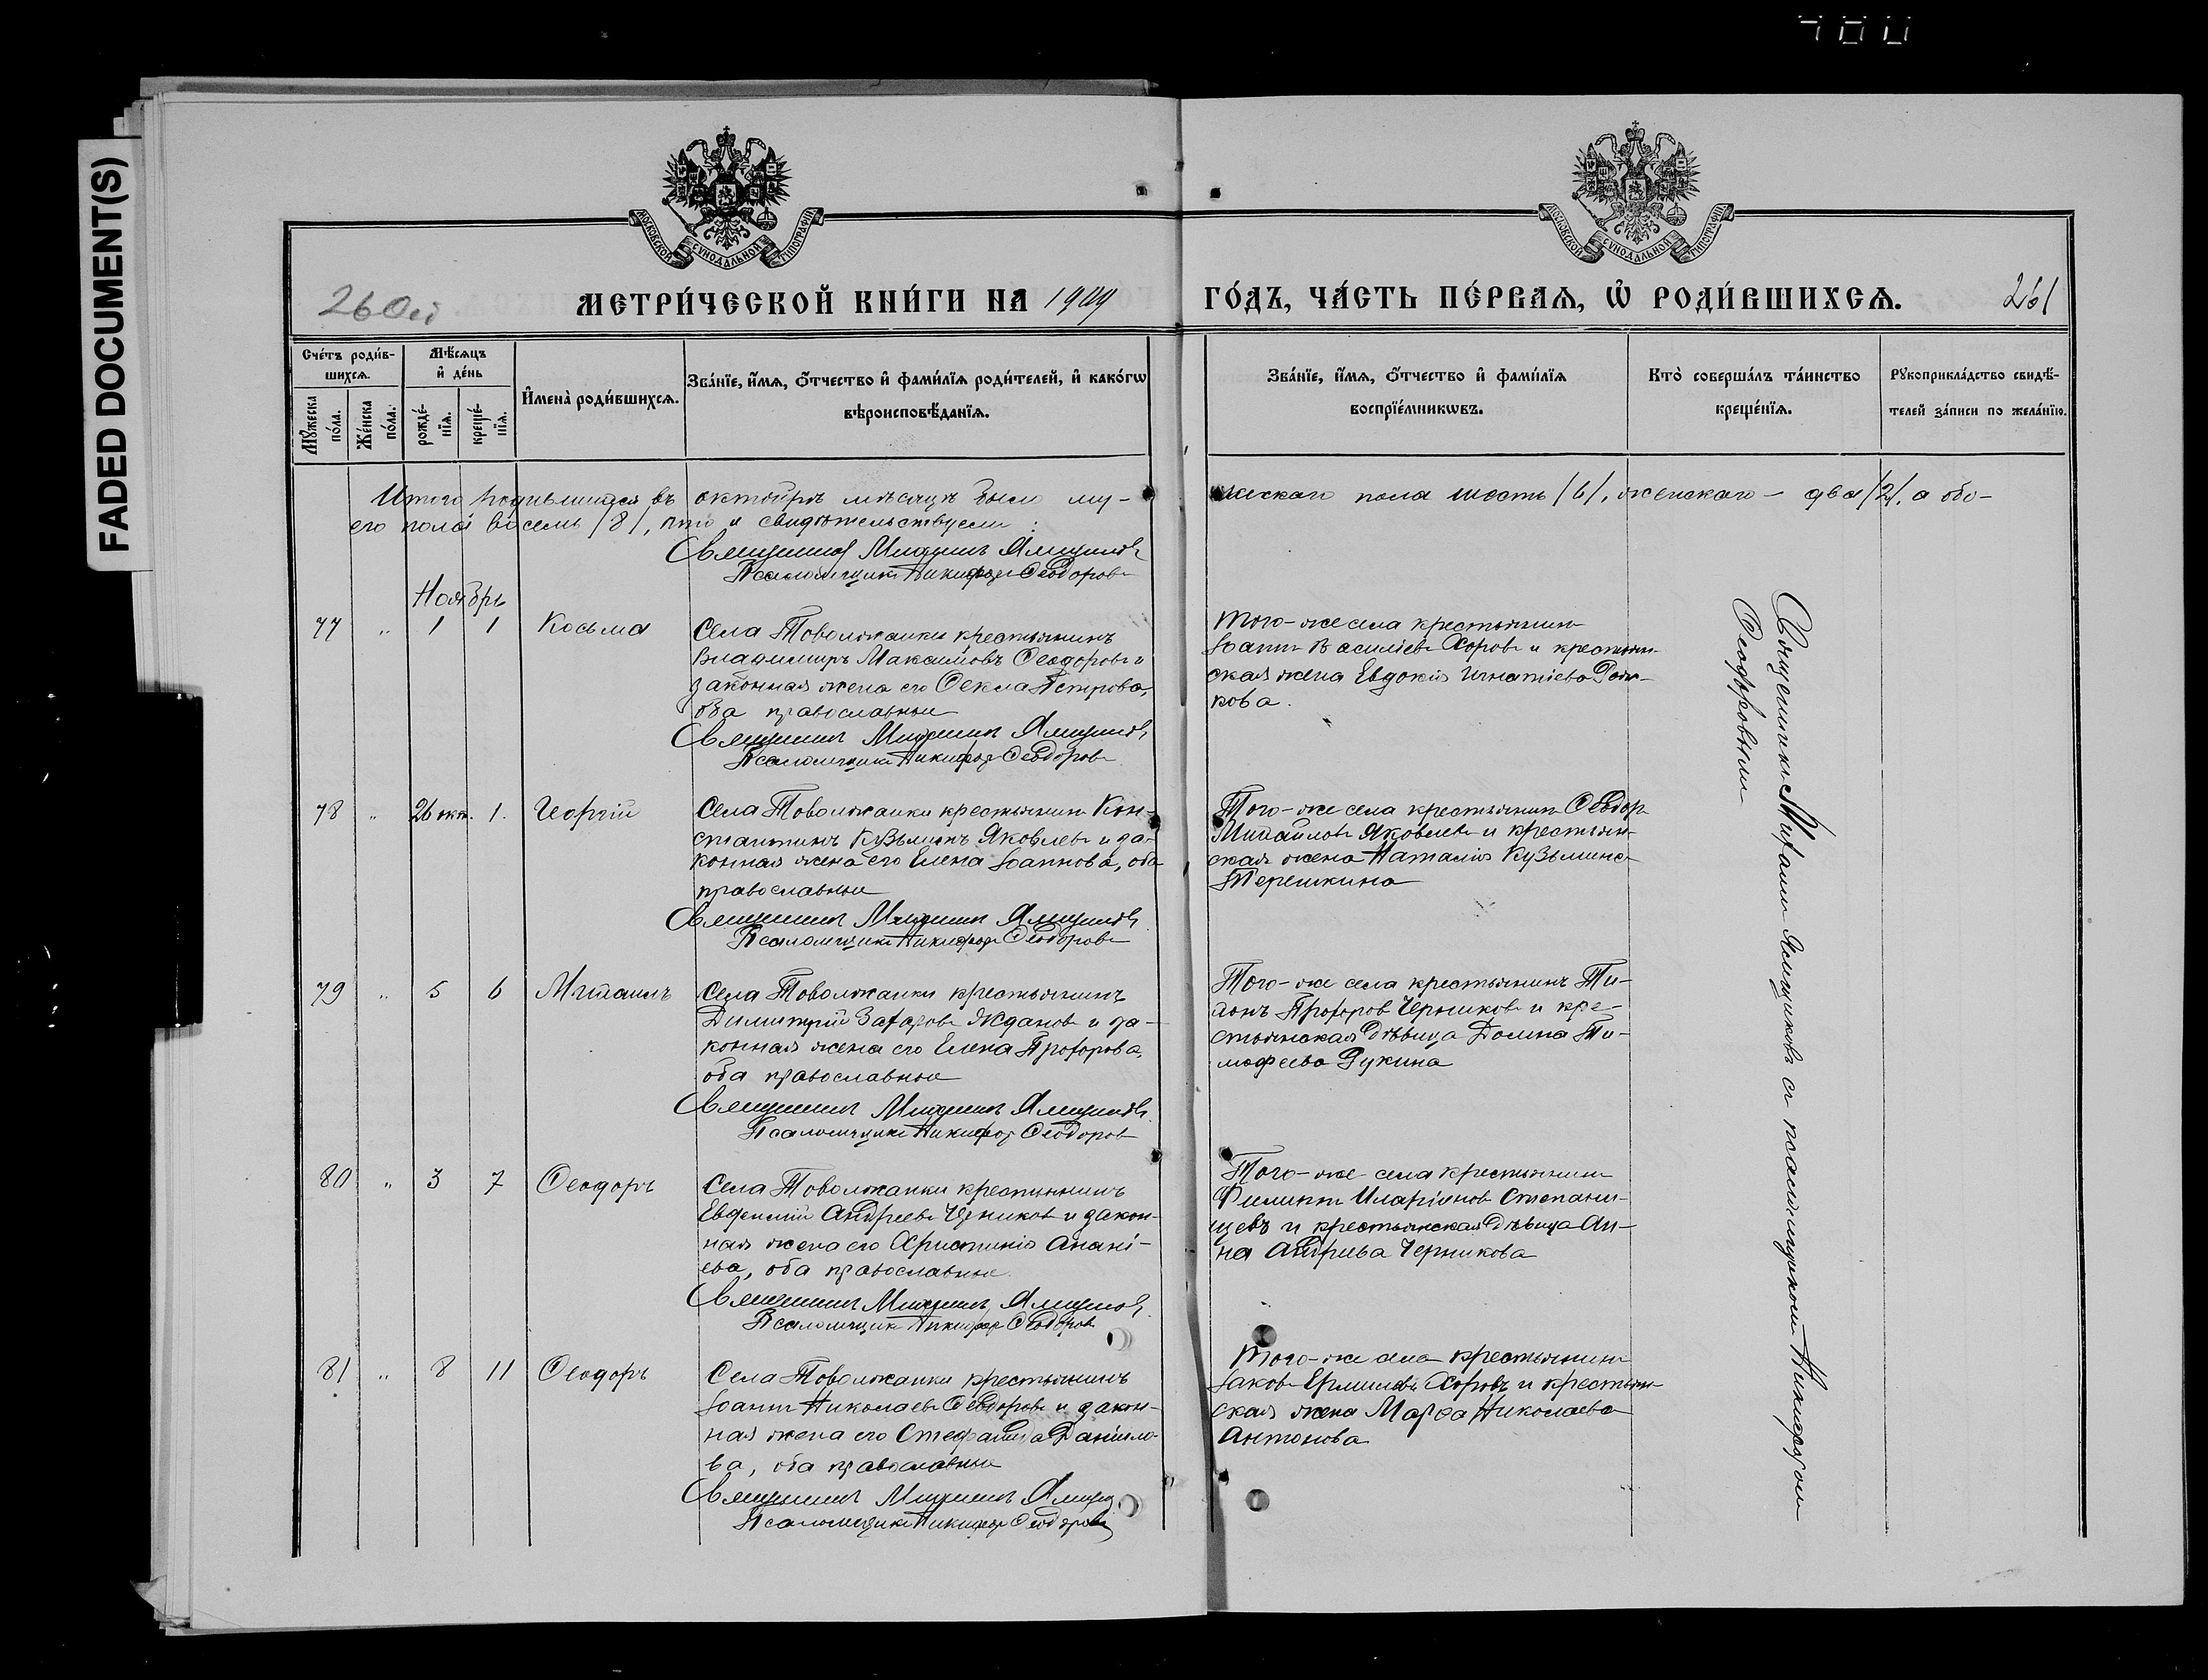 FADED DOCUMENT(S)
480
МОСКОВСКОЙ СУНОДАЛЬНОЙ ТИПОГРАФІИ
МОСКОВСКОЙ СУНОДАЛЬНОЙ ТИПОГРАФІИ
260
МЕТРИ́ЧЕСКОЙ КНИ́ГИ НА 1909
ГО́ДЪ, ЧА́СТЬ ПЕ́РВАѦ, Ѡ҆ РОДИ́ВШИХСѦ.
261
Сче́тъ роди́в-
шихсѧ.
Мꙋ́жеска по́ла.
Же́нска по́ла.
Мѣ́сѧцъ
и҆ де́нь
рожде́-
нїѧ.
креще́-
нїѧ.
И҆мена̀ роди́вшихсѧ.
Зва́нїе, и҆́мѧ, ѻ҆́тчество и҆ фами́лїѧ роди́телей, и҆ како́гѡ
вѣроисповѣ́данїѧ.
Зва́нїе, и҆́мѧ, ѻ҆́тчество и҆ фами́лїѧ
воспрїе́мникѡвъ.
Кто̀ соверша́лъ та́инство
креще́нїѧ.
Рꙋкоприкла́дство свидѣ́-
телей за́писи по жела́нїю.
Итого родившихся въ октябрѣ мѣсяцѣ было му-
жескаго пола шесть /6/, женскаго – два /2/, а обо-
его пола восемь /8/, что и свидѣтельствуемъ:
Священникъ Михаилъ Ямщиковъ
Псаломщикъ Никифоръ Ѳеодоровъ
Ноябрь
77 " 1 1 Косьма
Села Товолжанки крестьянинъ
Владимиръ Максимовъ Ѳеодоровъ и
законная жена его Ѳекла Петрова,
оба православные
Священникъ Михаилъ Ямщиковъ
Псаломщикъ Никифоръ Ѳеодоровъ
Того-же села крестьянинъ
Іоаннъ Василіевъ Хоровъ и крестьян-
ская жена Евдокія Игнатіева
кова.
78 " 26 окт. 1. Георгій
Села Товолжанки крестьянинъ Кон-
стантинъ Кузьминъ Яковлевъ и за-
конная жена его Елена Іоаннова, оба
православные
Священникъ Михаилъ Ямщиковъ
Псаломщикъ Никифоръ Ѳеодоровъ
Того-же села крестьянинъ Ѳеодоръ
Михайловъ Яковлевъ и крестьян-
ская жена Наталія Кузьмина
Терешкина
79 " 5 6 Михаилъ
Села Товолжанки крестьянинъ
Димитрій Захаровъ Ждановъ и за-
конная жена его Елена Прохорова,
оба православные
Священникъ Михаилъ Ямщиковъ
Псаломщикъ Никифоръ Ѳеодоровъ
Того-же села крестьянинъ Ти-
Прохоровъ Черниковъ и кре-
стьянская дѣвица Домна Ти-
мофеева Рукина
80 " 3 7 Ѳеодоръ
Села Товолжанки крестьянинъ
Евфимій Андреевъ Черниковъ и закон-
ная жена его Христинія Анані-
ева, оба православные
Священникъ Михаилъ Ямщиковъ
Псаломщикъ Никифоръ Ѳеодоровъ
Того-же села крестьянинъ
Филиппъ Иларіоновъ Степани-
щевъ и крестьянская дѣвица Ан-
на Андреева Черникова
81 " 8 11 Ѳеодоръ
Села Товолжанки крестьянинъ
Іоаннъ Николаевъ Ѳеодоровъ и закон-
ная жена его Стефанида Даніило-
ва, оба православные
Священникъ Михаилъ Ямщиковъ
Псаломщикъ Никифоръ Ѳеодоровъ
Того-же села крестьянинъ
Іаковъ Ермиловъ Хоровъ и крестьян-
ская жена Марѳа Николаева
Антонова
Священникъ Михаилъ Ямщиковъ съ псаломщикомъ Никифоромъ
Ѳеодоровымъ